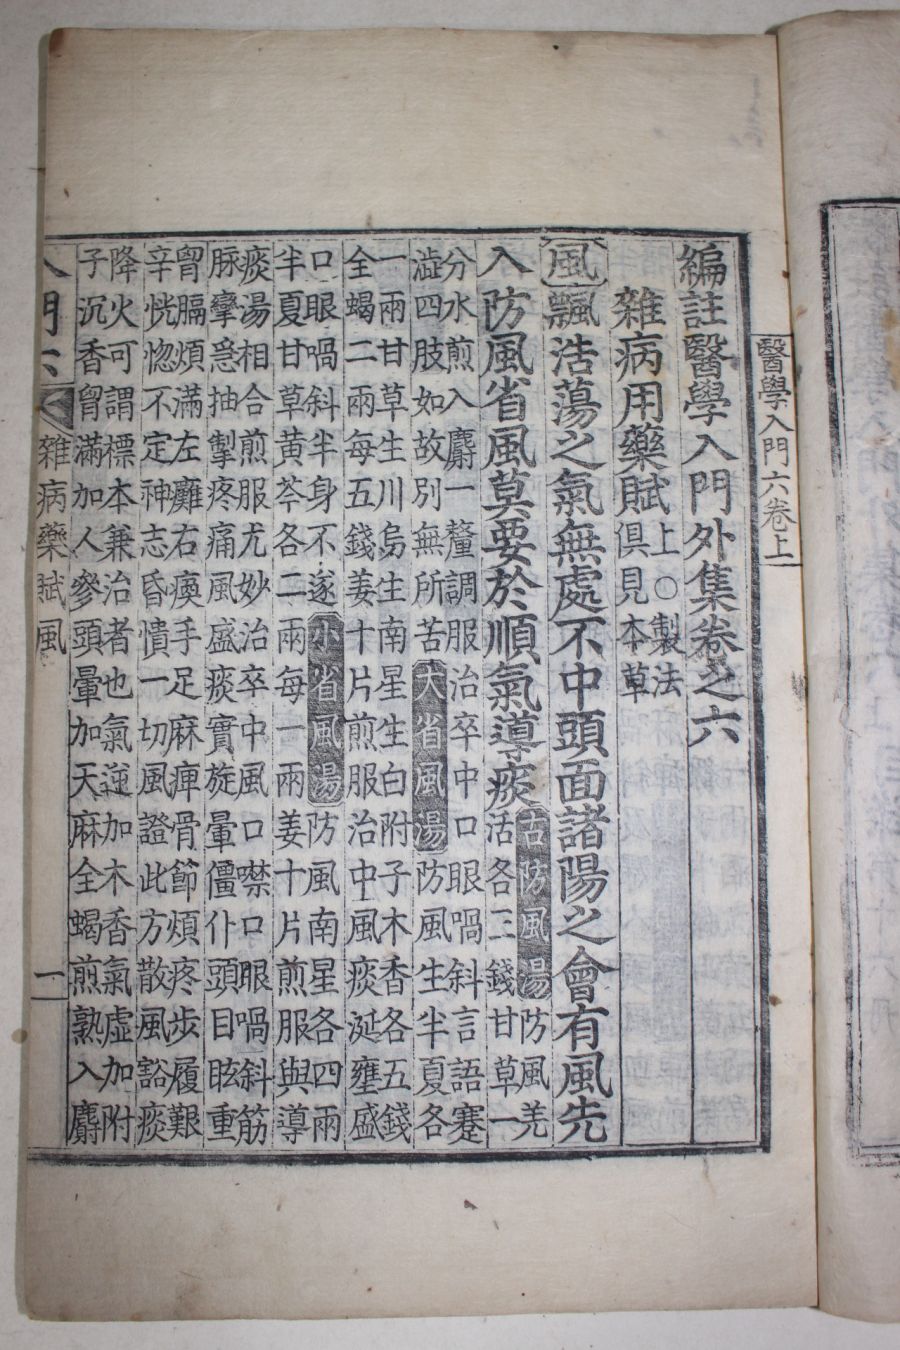 醫學入門六卷上
編註醫學入門外集卷之六
雜病用藥賦上○製法
俱見本草
風飄浩蕩之氣無處不中頭面諸陽之會有風先
入防風省風莫要於順氣導痰古防風湯防風羗
活各三錢甘草一
分水煎入麝一釐調服治卒中口眼喎斜言語蹇
澁四肢如故別無所苦大省風湯防風生半夏各
一兩甘草生川烏生南星生白附子木香各五錢
全蝎二兩每五錢姜十片煎服治中風痰涎壅盛
口眼喎斜半身不遂小省風湯防風南星各四兩
半夏甘草黃芩各二兩每一兩姜十片煎服與導
痰湯相合煎服尤妙治卒中風口噤口眼喎斜筋
脉攣急抽掣疼痛風盛痰實旋暈僵仆頭目眩重
胷膈煩滿左癱右瘓手足麻痺骨節煩疼步履艱
辛恍惚不定神志昏憒一切風證此方散風豁痰
降火可謂標本兼治者也氣逆加木香氣虛加附
子沉香胷滿加人參頭暈加天麻全蝎煎熟入麝
入門六 雜病藥賦風 一